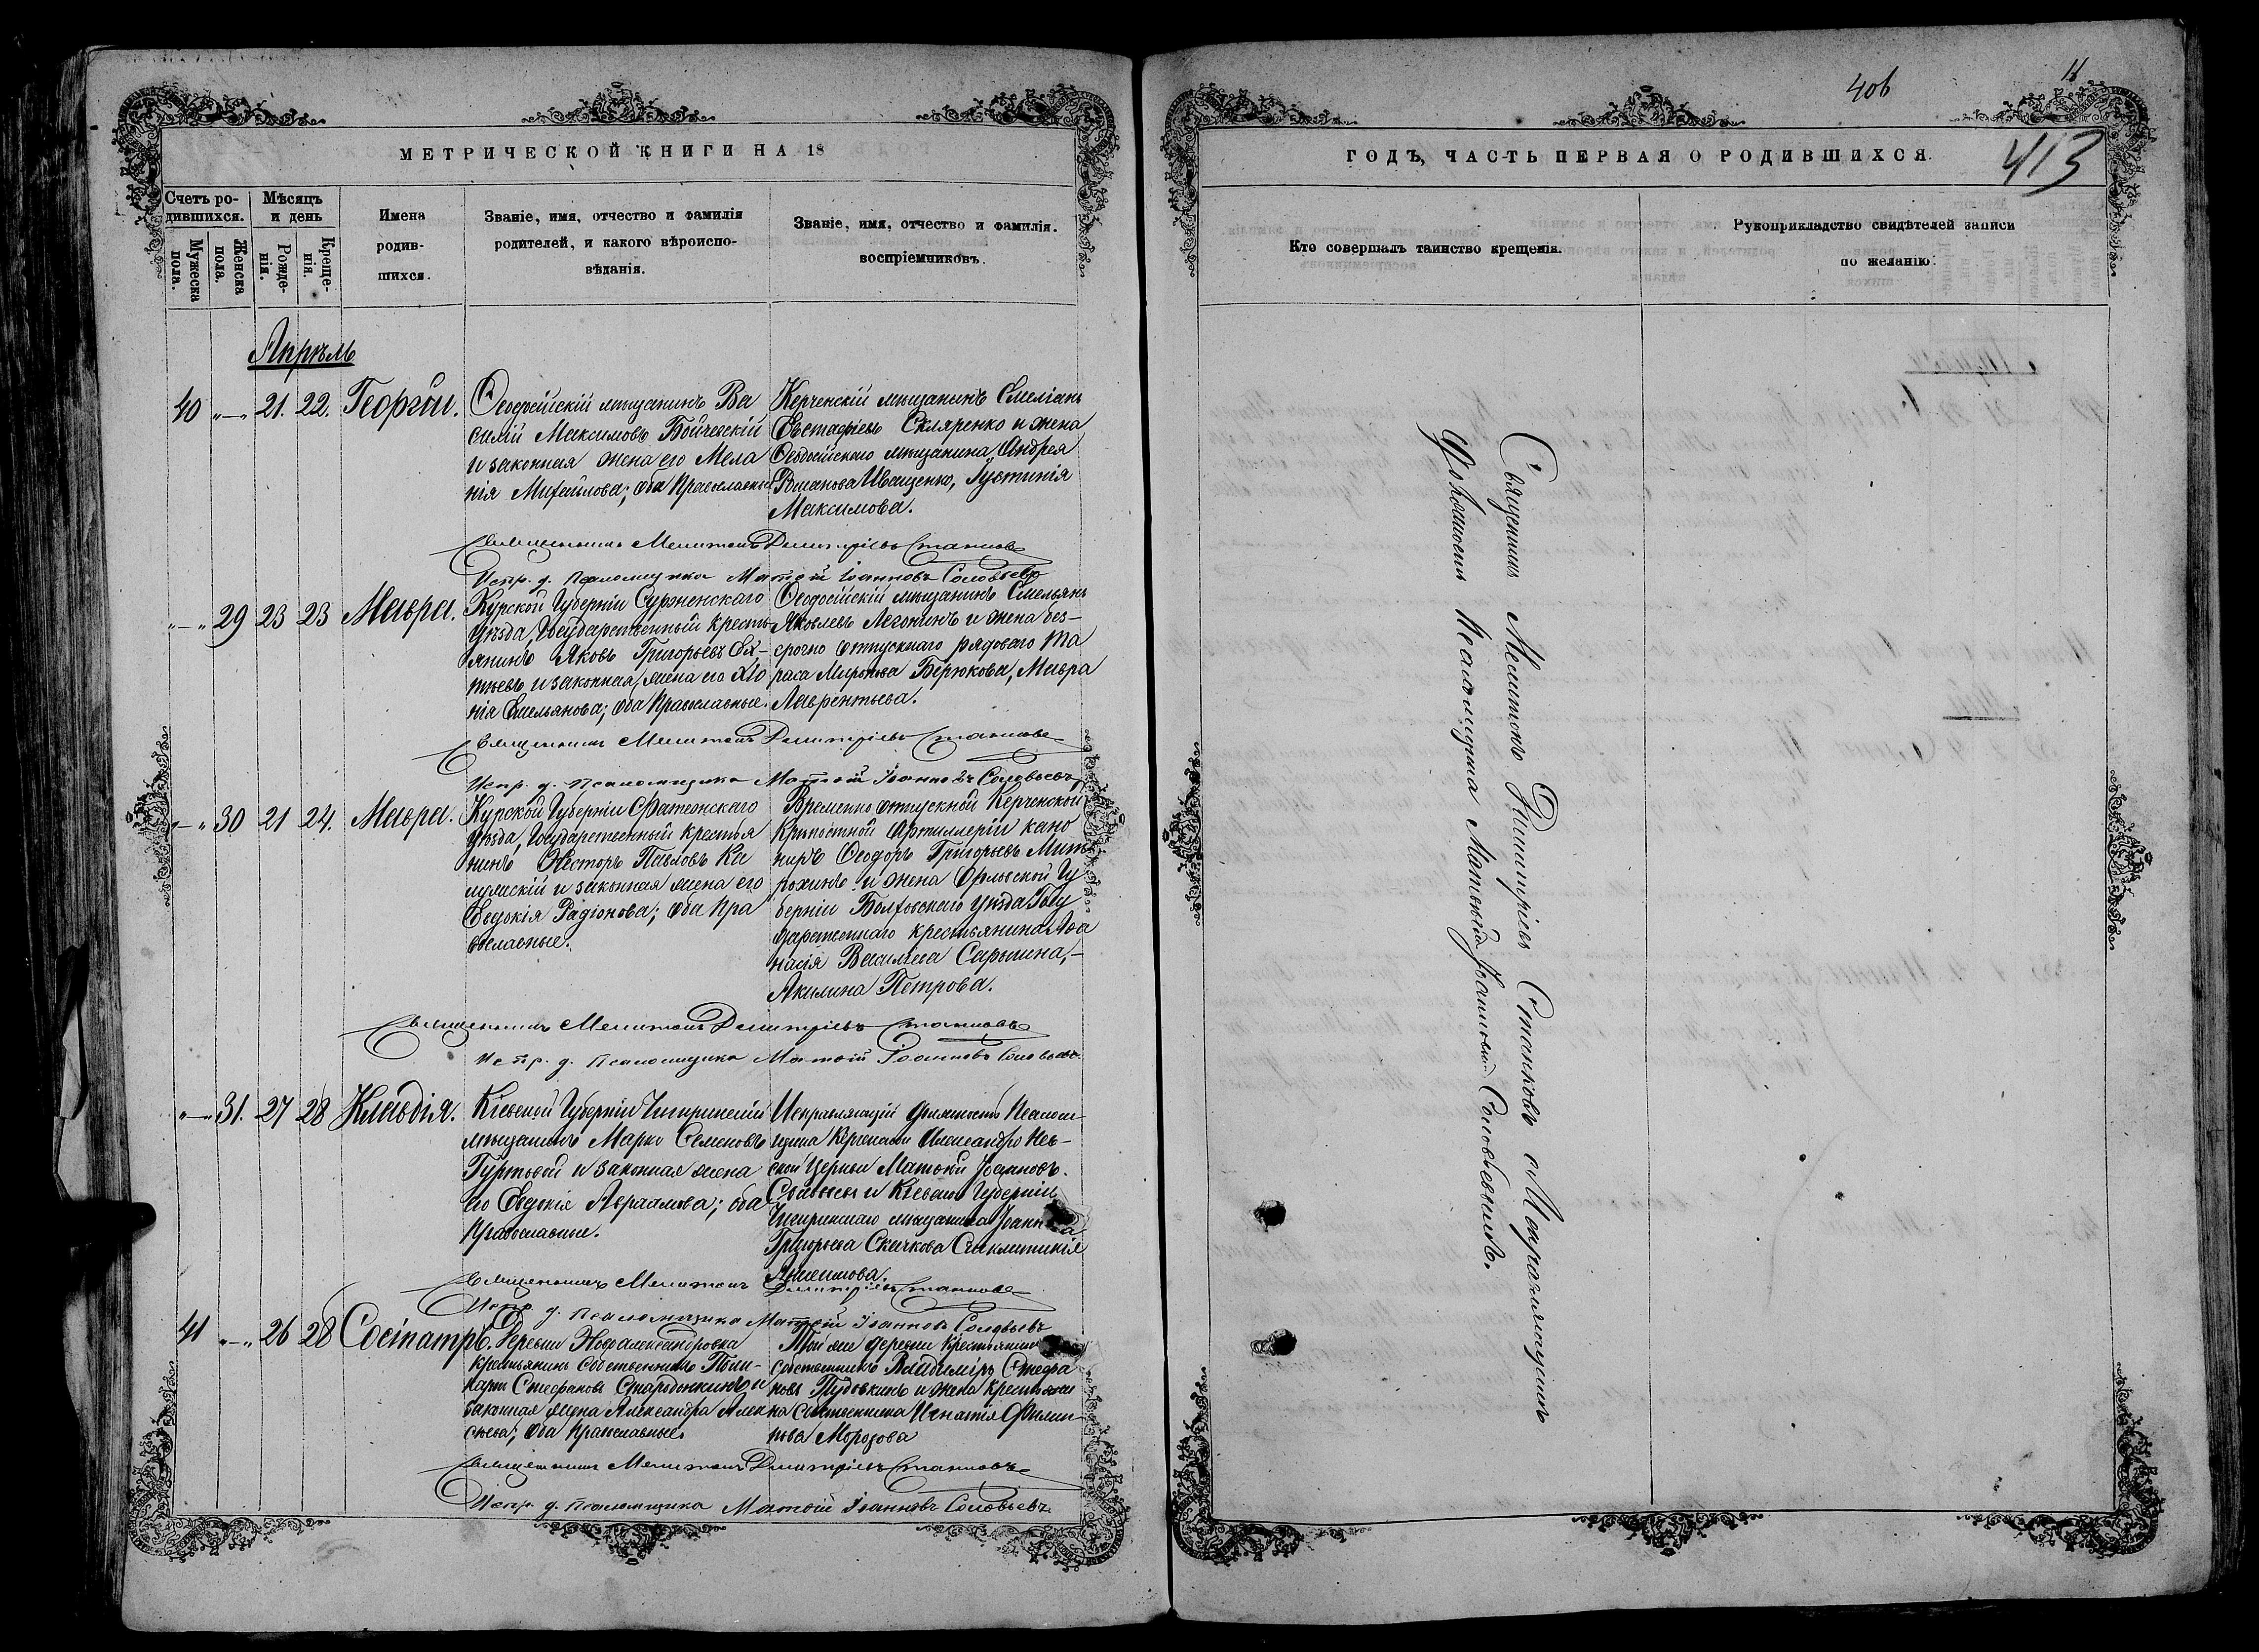 МЕТРИЧЕСКОЙ КНИГИ НА 18
Счетъ ро-
дившихся.
Мужеска
пола.
Женска
пола.
Мѣсяцъ
и день
Рожде-
нія.
Креще-
нія.
Имена
родив-
шихся.
Званіе, имя, отчество и фамилія
родителей, и какого вѣроиспо-
вѣданія.
Званіе, имя, отчество и фамилія.
воспріемниковъ.
Апрѣль
40 „—„ 21. 22. Георгій.
Ѳеодосійскій мѣщанинъ Ва
силій Максимовъ Бойчевскій
и законная жена его Мела
нія Михайлова; оба Православные
Керченскій мѣщанинъ Емеліанъ
Евстафіевъ Скляренко и жена
Ѳеодосійскаго мѣщанина Андрея
Иващенко, Іустинія
Максимова.
Священникъ Мелитонъ Димитріевъ Станковъ
Испр. д. Псаломщика Матѳій Іоанновъ Соловьевъ
„—„ 29 23 23 Мавра.
Курской Губерніи Сурженскаго
Уѣзда, Государственный кресть
янинъ Яковъ Григорьевъ Ев-
тѣевъ и законная жена его
нія Емельянова; оба Православные.
Ѳеодосійскій мѣщанинъ Емельянъ
Яковлевъ Легонинъ и жена без-
срочно отпускнаго рядоваго Та
раса Миронова Берюкова, Мавра
Лаврентьева.
Священникъ Мелитонъ Димитріевъ Станковъ
Испр. д. Псаломщика Матѳій Іоанновъ Соловьевъ
„—„ 30 21 24. Мавра.
Курской Губерніи Фатежскаго
Уѣзда, Государственный крестья
нинъ Несторъ Павловъ Ка
лужскій и законная жена его
Евдокія Радіонова; оба Пра
вославные.
Временно отпускной Керченской
Крѣпостной Артиллеріи кано
ниръ Ѳеодоръ Григорьевъ Мит
рохинъ и жена Орловской Гу
берніи Болховскаго уѣзда Госу
дарственнаго крестьянина Аѳа
насія Васильева Сарычина,—
Акилина Петрова.
Священникъ Мелитонъ Димитріевъ Станковъ
Испр. д. Псаломщика Матѳій Іоанновъ Соловьевъ
„—„ 31. 27 28 Клавдія.
Кіевской Губерніи Чигиринскій
мѣщанинъ Марко Семеновъ
Гуртовой и законная жена
его Евдокія Авраамова; оба
Православные.
Исправляющій должность Псалом-
щика Керченской Александро Нев-
ской Церкви Матѳій Іоанновъ.
Соловьевъ и Кіевской Губерніи
Чигиринскаго мѣщанина Іоанна
Григорьева Скачкова Синклитикія
Анисимова.
Священникъ Мелитонъ Димитріевъ Станковъ
Испр. д. Псаломщика Матѳій Іоанновъ Соловьевъ
41 „—„ 26 28 Сосіпатръ.
Деревни Новоалександровка
крестьянинъ собственникъ Поли-
карпъ Стефановъ Стародонкинъ и
законная жена Александра Алек
сѣева; оба Православные.
Той же деревни крестьянинъ
собственникъ Владиміръ Стефа
новъ Пудовкинъ и жена крестьяни
на собственника Игнатія Филип
пова Морозова
Священникъ Мелитонъ Димитріевъ Станковъ
Испр. д. Псаломщика Матѳій Іоанновъ Соловьевъ
406
413
ГОДЪ, ЧАСТЬ ПЕРВАЯ О РОДИВШИХСЯ.
Кто совершалъ таинство крещенія.
Рукоприкладство свидѣтелей записи
по желанію.
Священникъ Мелитонъ Димитріевъ Станковъ
Псаломщика Матѳеемъ Іоанновымъ Соловьевымъ.